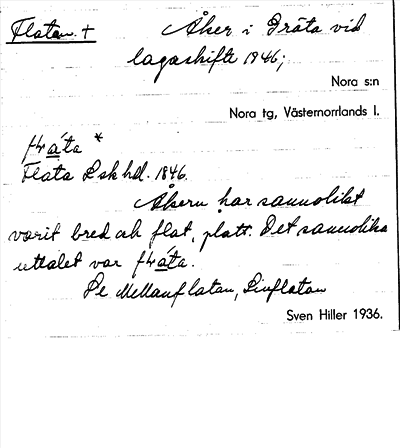 Flatan +
Åker i Gräta vid
lagaskifte 1946;
Nora s:n
Nora tg, Västernorrlands l.
fɫáta *
Flata Lskhdl. 1846.
Åkern har sannolikt
varit bred och flat, platt. Det sannolika
uttalet var fɫáta.
Se Mellanflatan, Linflatan
Sven Hiller 1936.